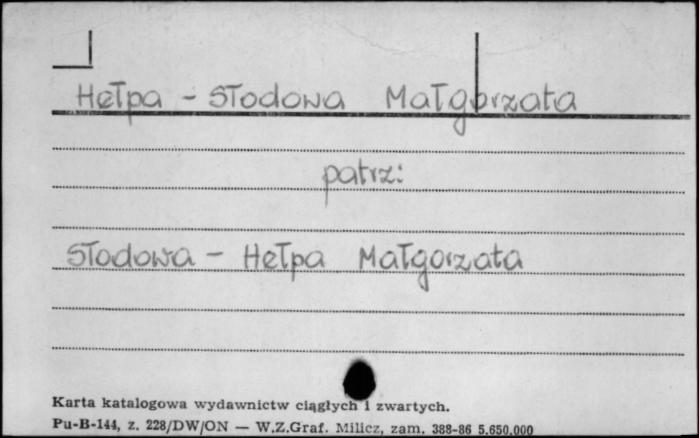 Hełpa - Słodowa Małgorzata
patrz:
Słodowa - Hełpa Małgorzata
Karta katalogowa wydawnictw ciągłych i zwartych.
Pu-B-144, z. 228/DW/ON — W.Z.Graf. Milicz, zam. 388-86 5.650.000